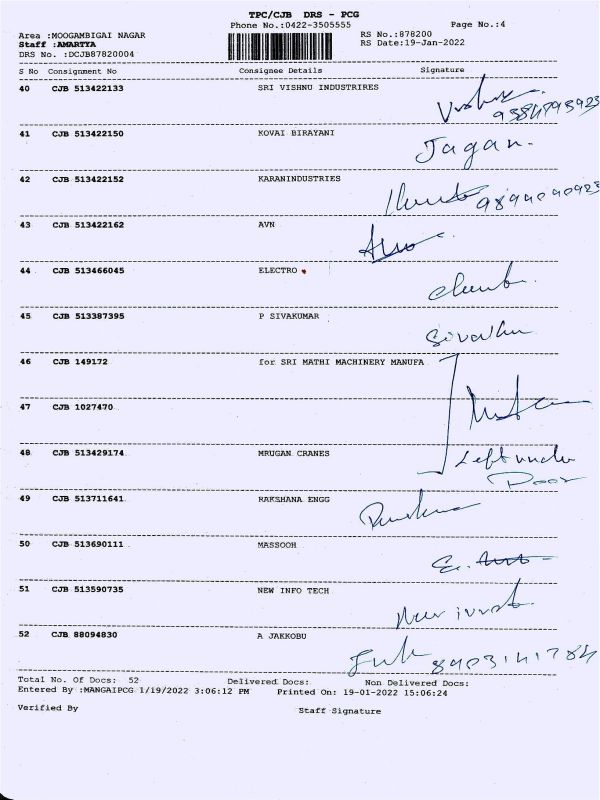 TPC/CJB DRS - PCG
Phone No.:0422-3505555 Page No.:4
Area :MOOGAMBIGAI NAGAR RS No.:878200
Staff :AMARTYA RS Date:19-Jan-2022
DRS No. :DCJB87820004
S No Consignment No Consignee Details Signature
40 CJB 513422133 SRI VISHNU INDUSTRIRES
41 CJB 513422150 KOVAI BIRAYANI Jagan.
42 CJB 513422152 KARANINDUSTRIES
43 CJB 513422162 AVN
44 CJB 513466045 ELECTRO
45 CJB 513387395 P SIVAKUMAR
46 CJB 149172 for SRI MATHI MACHINERY MANUFA
47 CJB 1027470
48 CJB 513429174 MRUGAN CRANES Left under
Door
49 CJB 513711641 RAKSHANA ENGG
50 CJB 513690111 MASSOOH
51 CJB 513590735 NEW INFO TECH
52 CJB 88094830 A JAKKOBU
Total No. Of Docs: 52 Delivered Docs: Non Delivered Docs:
Entered By :MANGAIPCG 1/19/2022 3:06:12 PM Printed On: 19-01-2022 15:06:24
Verified By Staff Signature